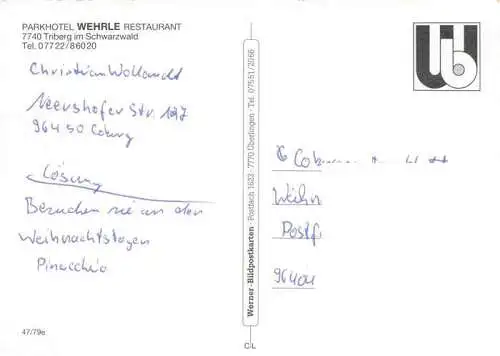 PARKHOTEL WEHRLE RESTAURANT
7740 Triberg im Schwarzwald
Tel. 07722/86020
Christian
Neershofer Str. 127
96450 Coburg
Lösung
Besuchen sie an den
Weihnachtstagen
Pinocchio
47/79e
Werner-Bildpostkarten · Postfach 1622 · 7770 Überlingen · Tel. 07551/2066
C/L
Weihn
Postf
96404